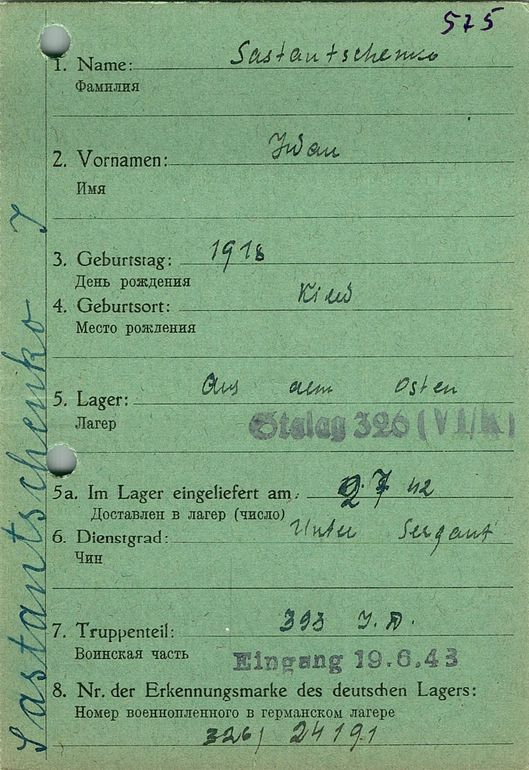 575
1. Name: Sastantschenko
Фамилия
2. Vornamen: Iwan
Имя
3. Geburtstag: 1918
День рождения
4. Geburtsort: Kiew
Место рождения
5. Lager: Aus dem Osten
Лагер
Stalag 326 (VI/K)
5a. Im Lager eingeliefert am: 2.7 42
Доставлен в лагер (число)
6. Dienstgrad: Unter Sergant
Чин
7. Truppenteil: 393 I.D.
Воинская часть
Eingang 19.6.43
8. Nr. der Erkennungsmarke des deutschen Lagers:
Номер военнопленного в германском лагере
326/ 24191
Sastantschenko I